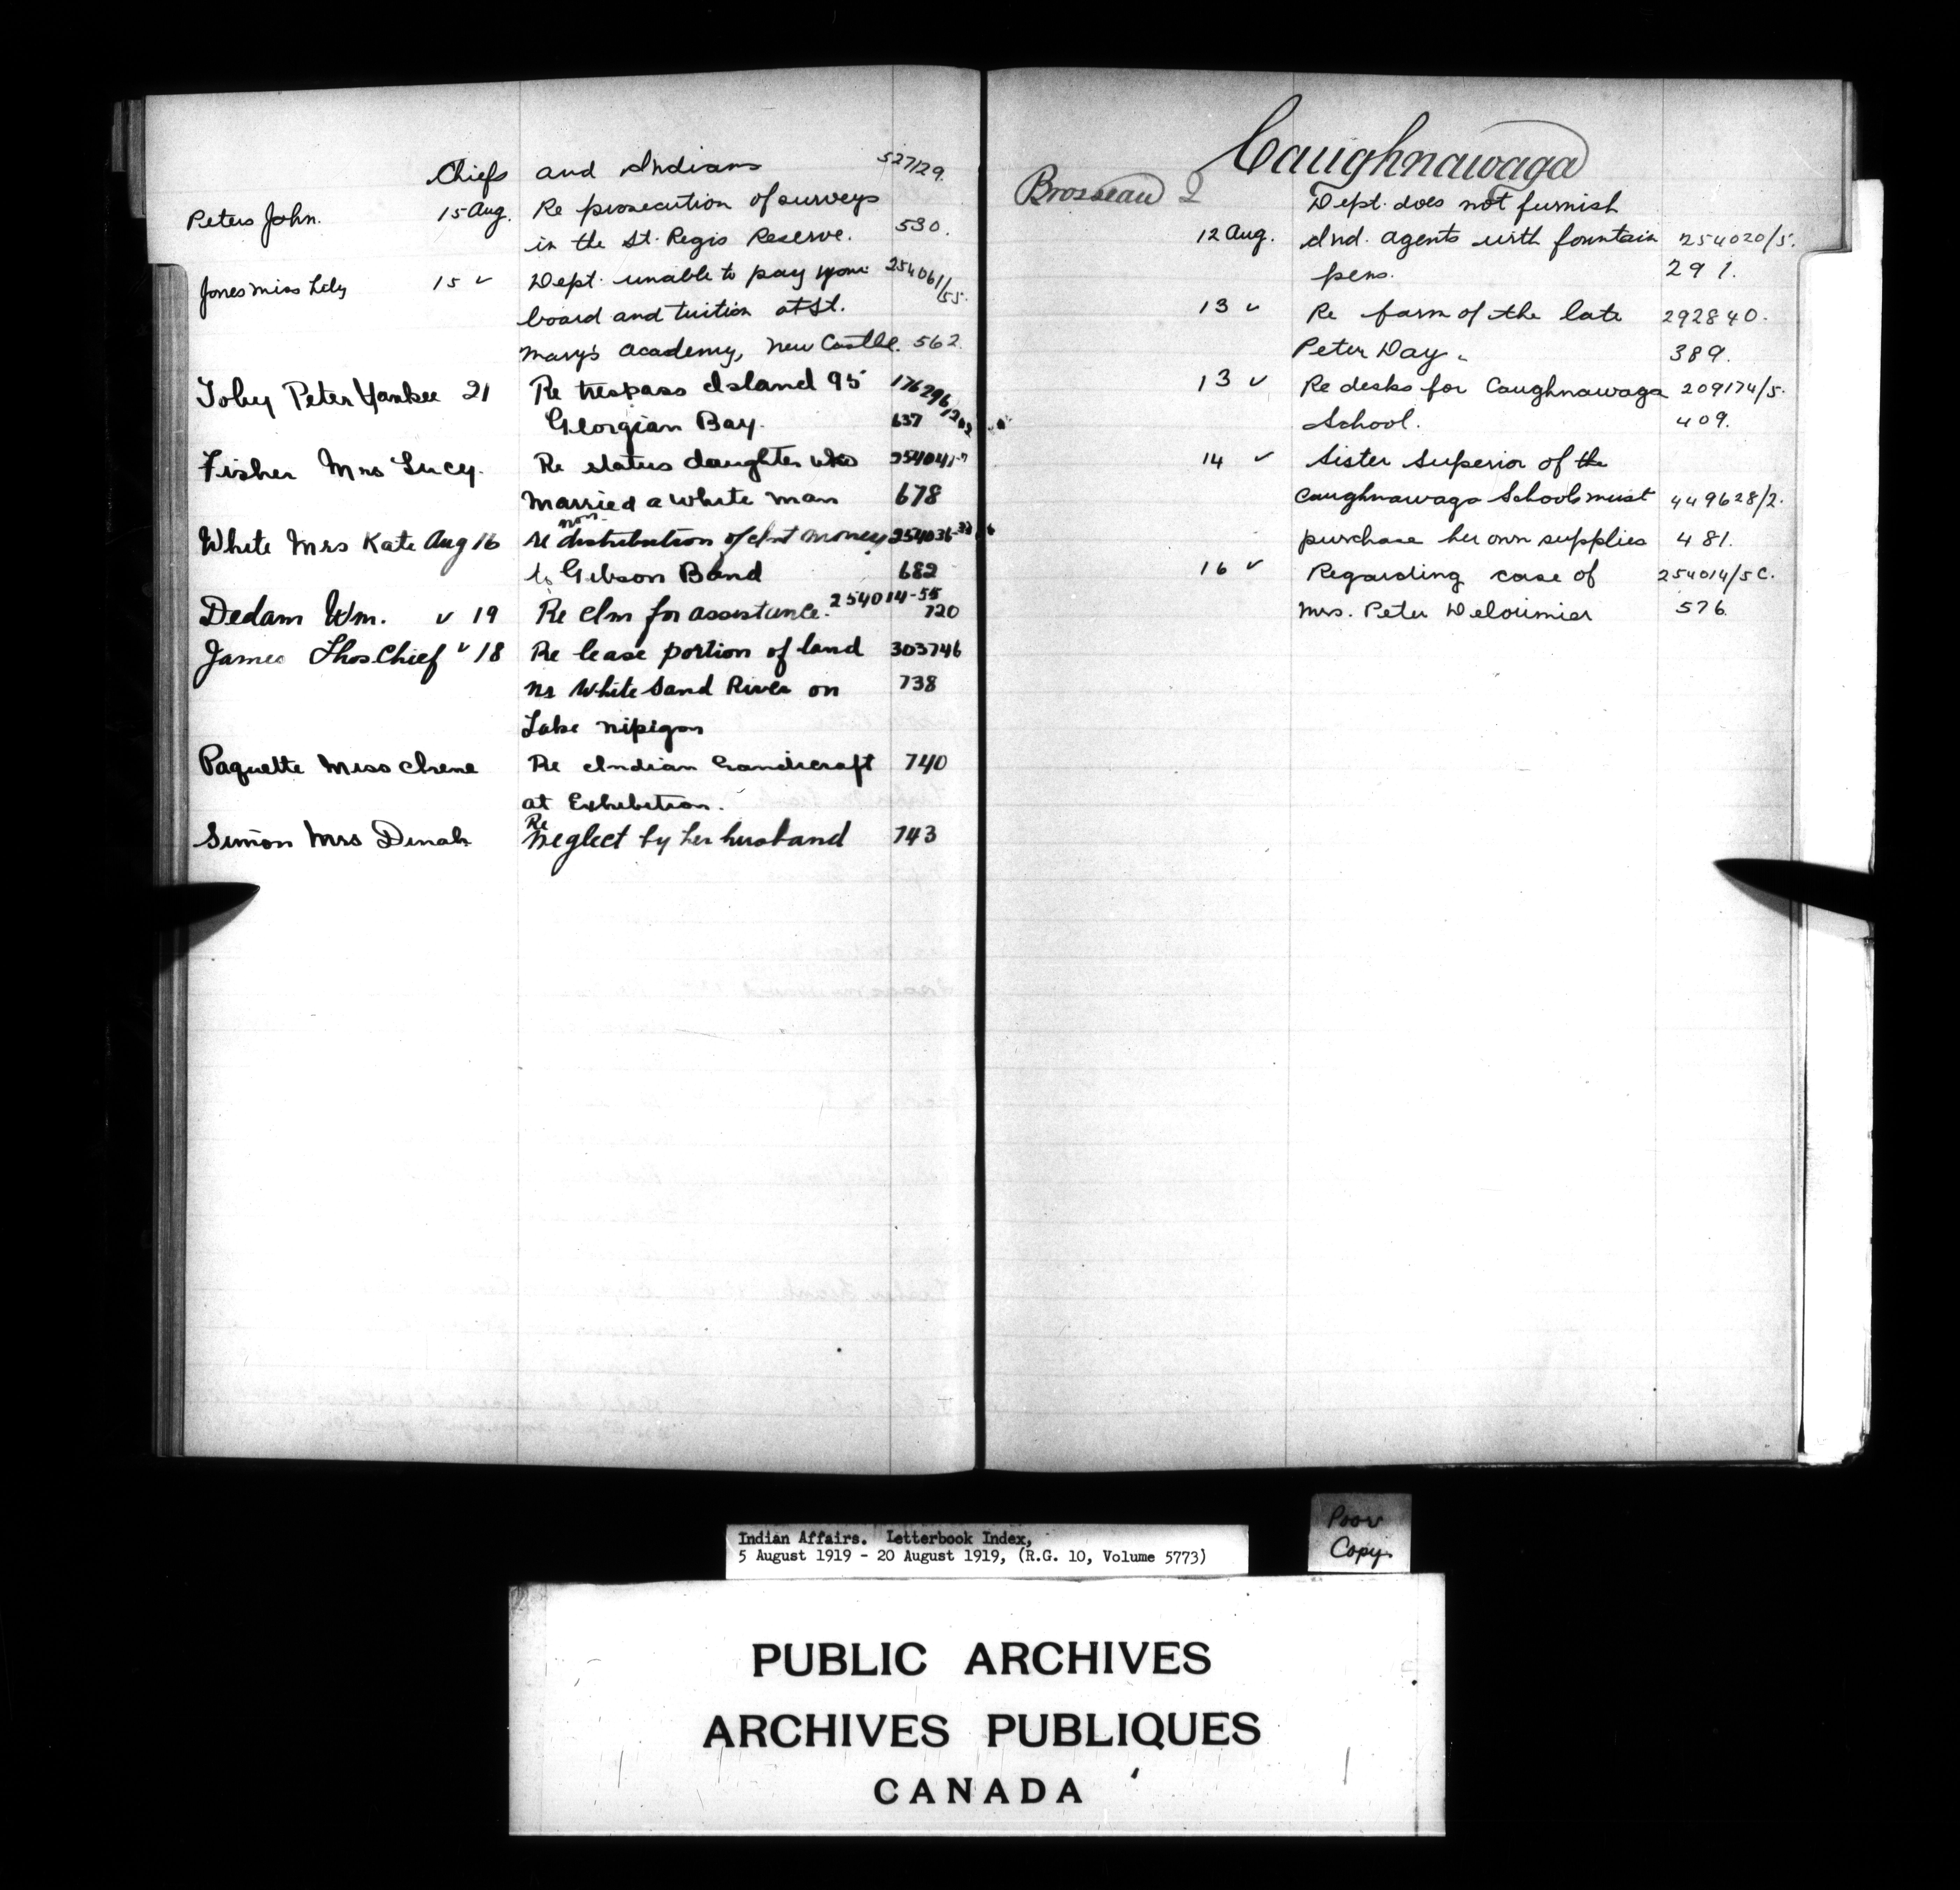 Chiefs and Indians 527129.
Peters John. 15 Aug. Re prosecution of surveys
in the St. Regis Reserve. 530.
Jones Miss Lily 15 " Dept. unable to pay your 254061/55.
board and tuition at St.
Mary's Academy, New Castle. 562.
Toby Peter Yankee 21 Re trespass Island 95 176296
Georgian Bay. 637
Fisher Mrs Lucy. Re status daughter who 254041-7
married a white man 678
White Mrs Kate Aug 16 Re non distribution of Int money 254036
to Gibson Band 682
Dedam Wm. " 19 Re clm for assistance. 254014-55
720
James Thos Chief " 18 Re lease portion of land 303746
nr White Sand River on 738
Lake Nipigon
Paquette Miss Irene Re Indian handicraft 740
at Exhibition.
Simon Mrs Dinah Re neglect by her husband 743
Caughnawaga
Brosseau Dept. does not furnish
12 Aug. Ind. Agents with fountain 254020/5.
pens. 291.
13 " Re farm of the late 292840.
Peter Day. 389.
13 " Re desks for Caughnawaga 209174/5.
School. 409.
14 " Sister Superior of the
Caughnawaga Schools must 449628/2.
purchase her own supplies 481.
16 " Regarding case of 254014/5C.
Mrs. Peter Delorimier 576.
Indian Affairs. Letterbook Index,
5 August 1919 - 20 August 1919, (R.G. 10, Volume 5773)
Poor
Copy.
PUBLIC ARCHIVES
ARCHIVES PUBLIQUES
CANADA